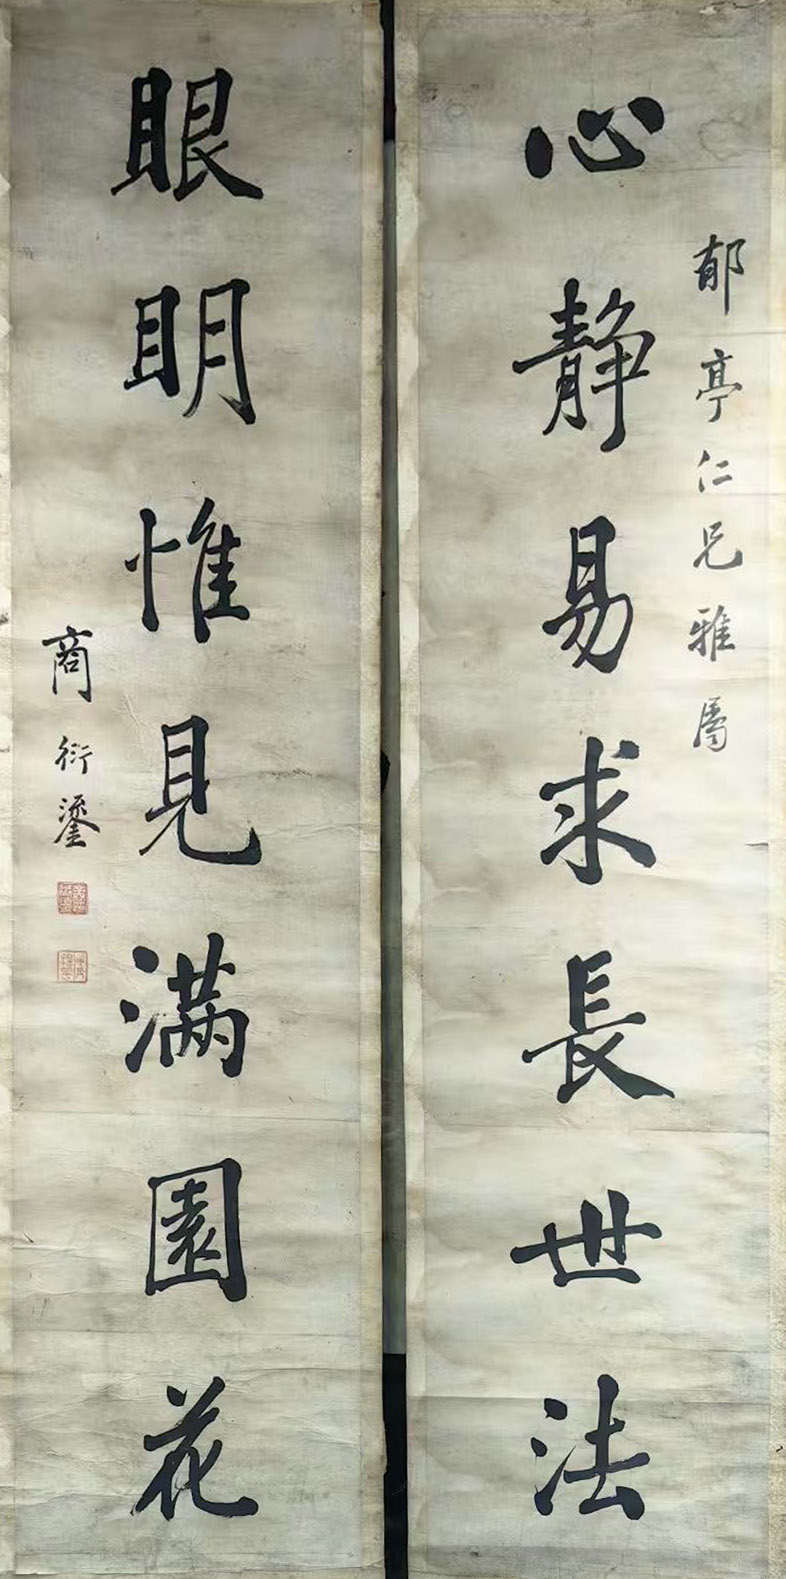 郁亭仁兄雅屬
心静易求長世法
眼明惟見滿園花
商衍鎏